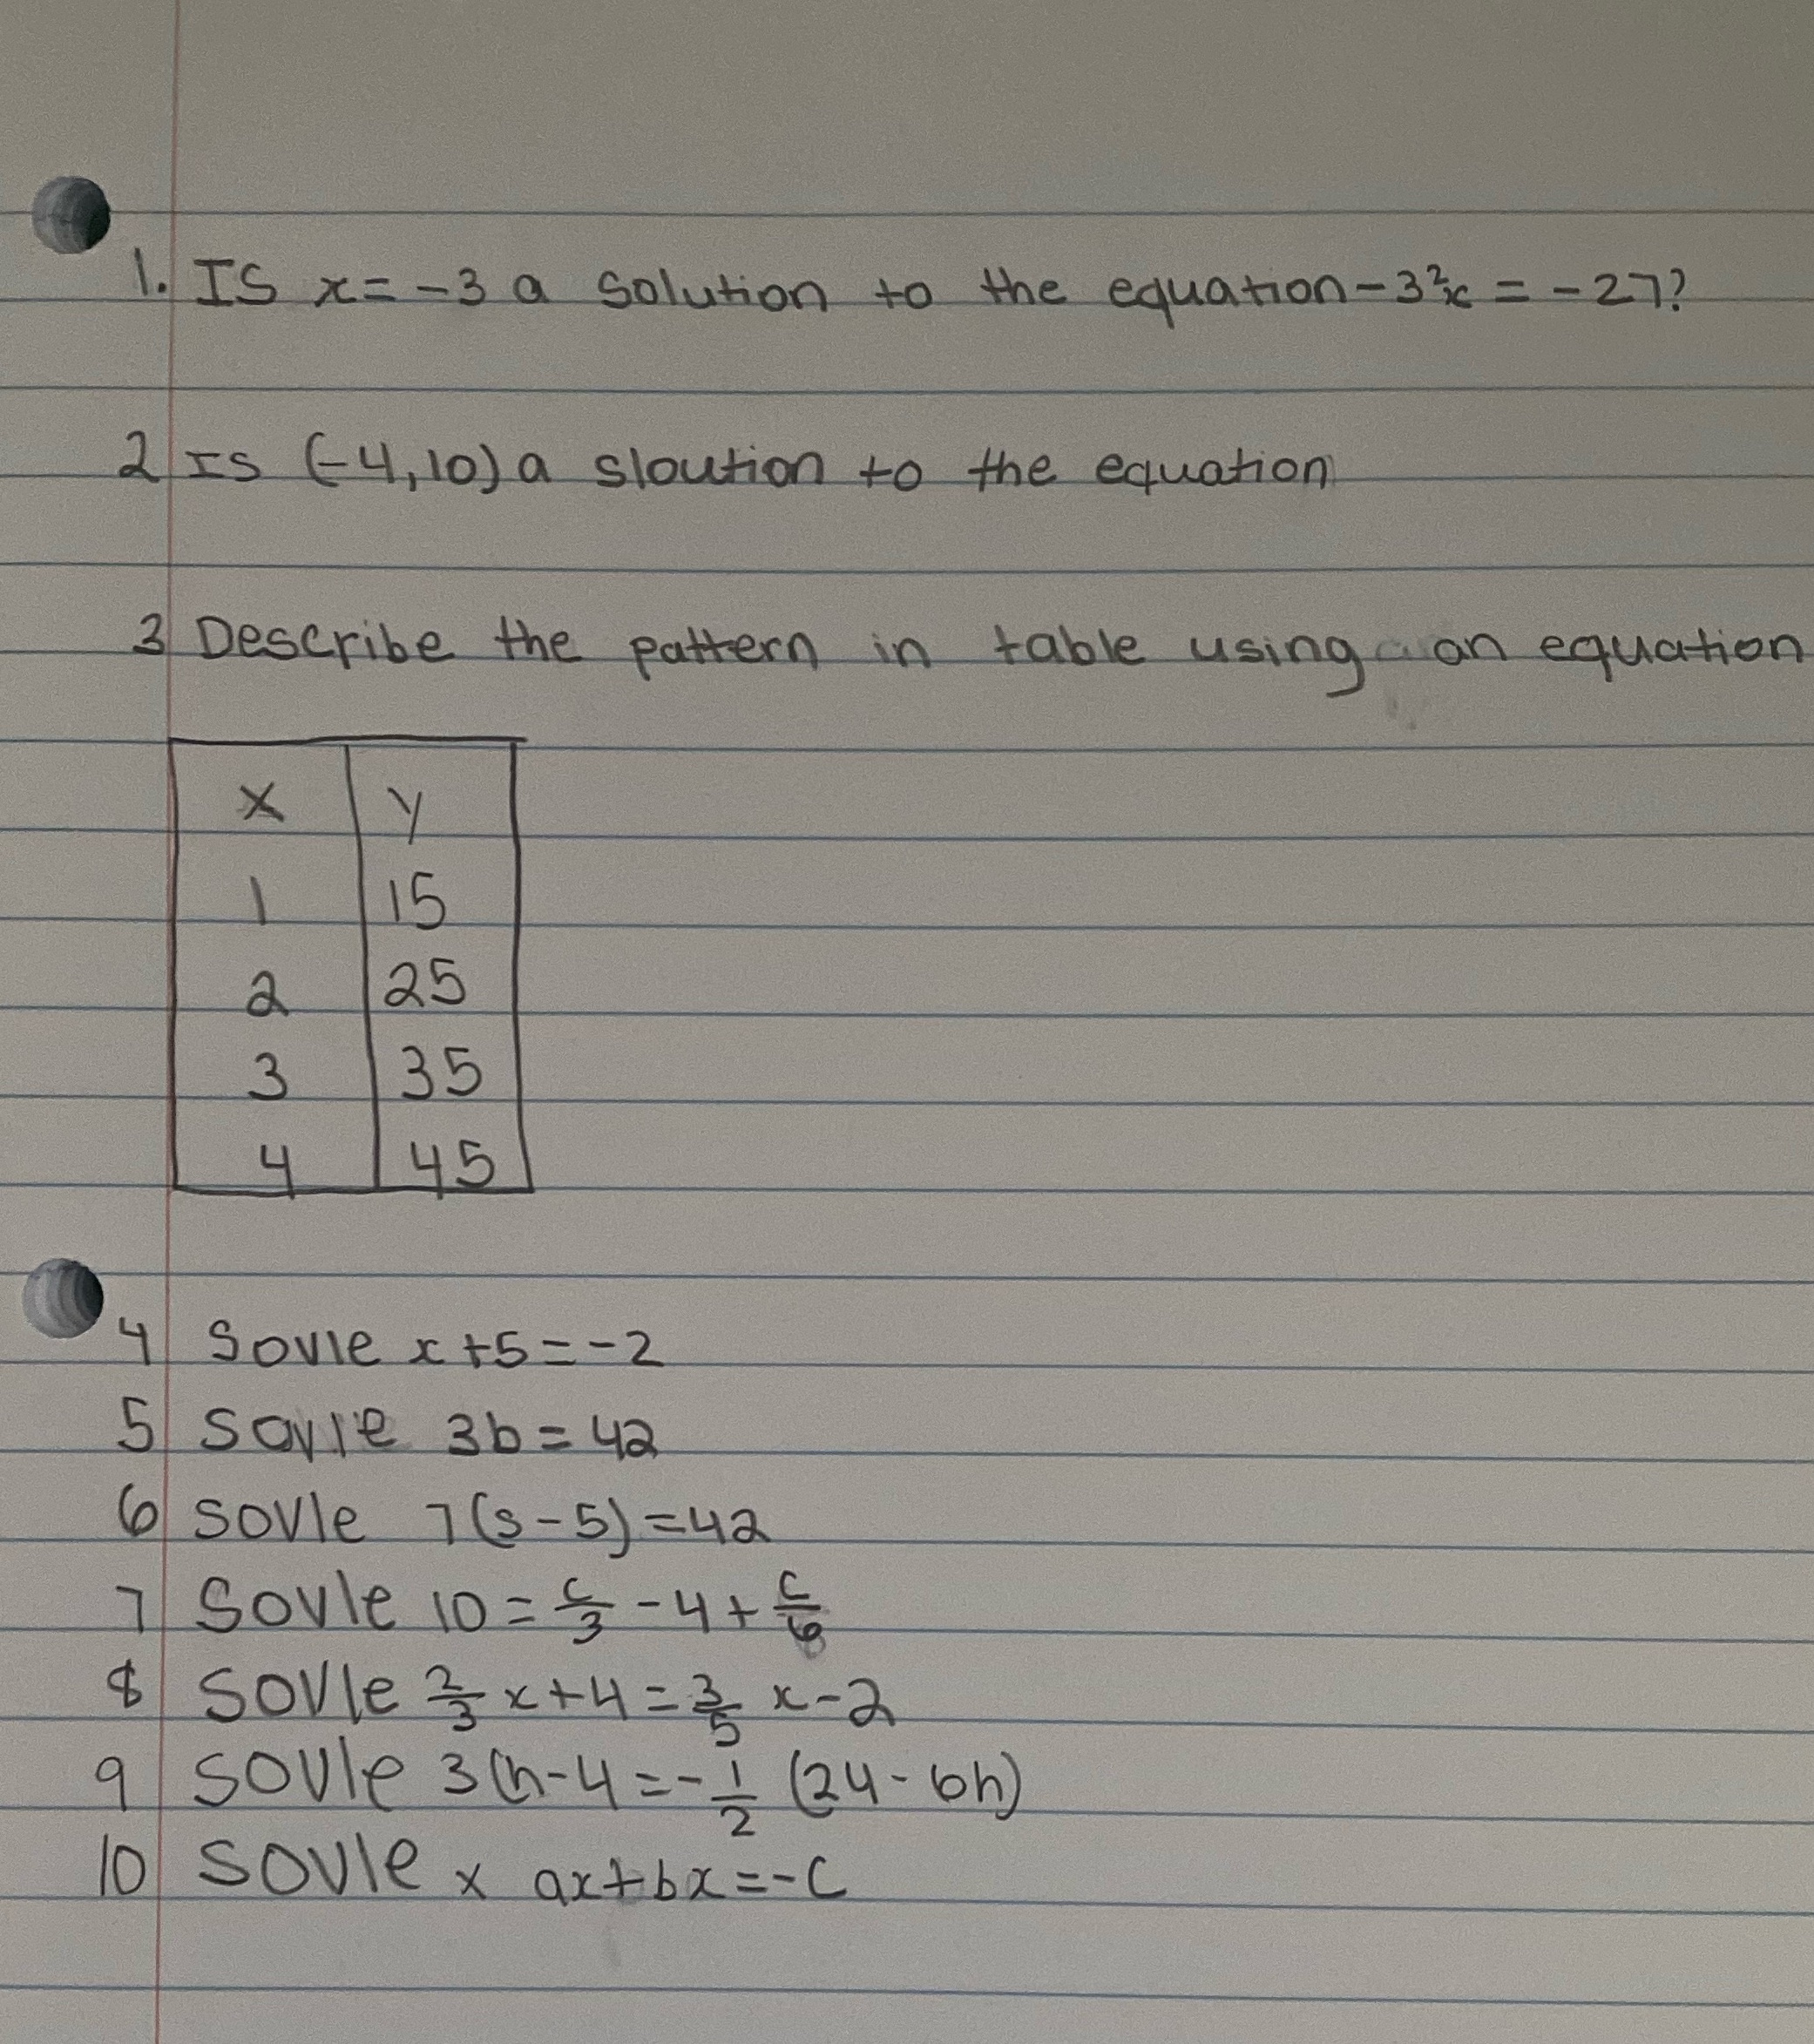 1. IS x=-3 a solution to the equation -3²x = -27?
2 Is (-4,10) a sloution to the equation
3 Describe the pattern in table using an equation
x y
1 15
2 25
3 35
4 45
4 Sovle x+5=-2
5 Sovle 3b=42
6 sovle 7(s-5)=42
7 Sovle 10=c/3-4+c/6
8 Sovle 2/3 x+4=3/5 x-2
9 Sovle 3(h-4=-1/2 (24-6h)
10 Sovle x ax+bx=-c